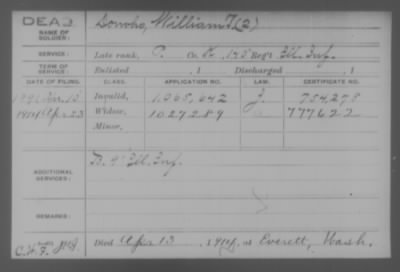 DEAD
NAME OF SOLDIER: Donoho, William T (2)
SERVICE: Late rank, P. Co. K, 175 Reg't Ill. Inf.
TERM OF SERVICE: Enlisted , 1 Discharged , 1
DATE OF FILING. CLASS. APPLICATION NO. LAW. CERTIFICATE NO.
Invalid, 1,068,642 J. 754,278
Apr 23 Widow, 1027289 777622
Minor,
ADDITIONAL SERVICES: B. 9" Ill. Inf.
REMARKS:
Died Apr 13 , 1914, at Everett, Wash.